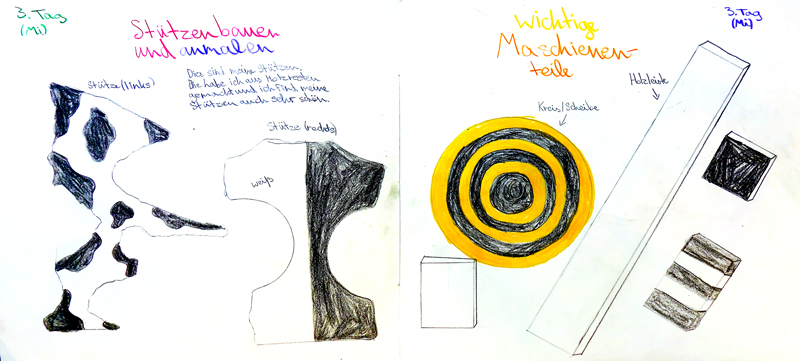 3. Tag
(Mi)
Stützenbauen
und anmalen
Stütze (links)
Dies sind meine Stützen.
Die habe ich aus Holzresten
gemacht und ich find meine
Stützen auch sehr schön.
Stütze (rechts)
weiß
Wichtige
Maschienen-
teile
3. Tag
(Mi)
Holzleiste
Kreis/Scheibe